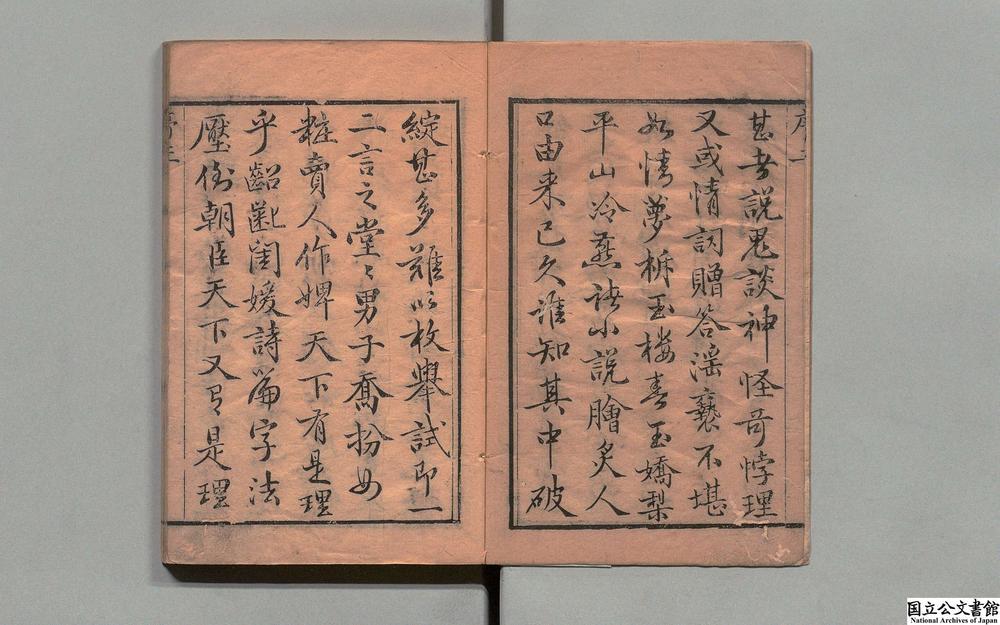 序二
甚者說鬼談神怪奇悖理
又或情詞贈答淫褻不堪
如情夢柝玉樓春玉嬌梨
平山冷燕諸小說膾炙人
口由来已久誰知其中破
綻甚多難以枚舉試即一
二言之堂〻男子喬扮女
粧賣人作婢天下有是理
乎齠齔閨媛詩篇字法
壓倒朝臣天下又有是理
序三
国立公文書館
National Archives of Japan